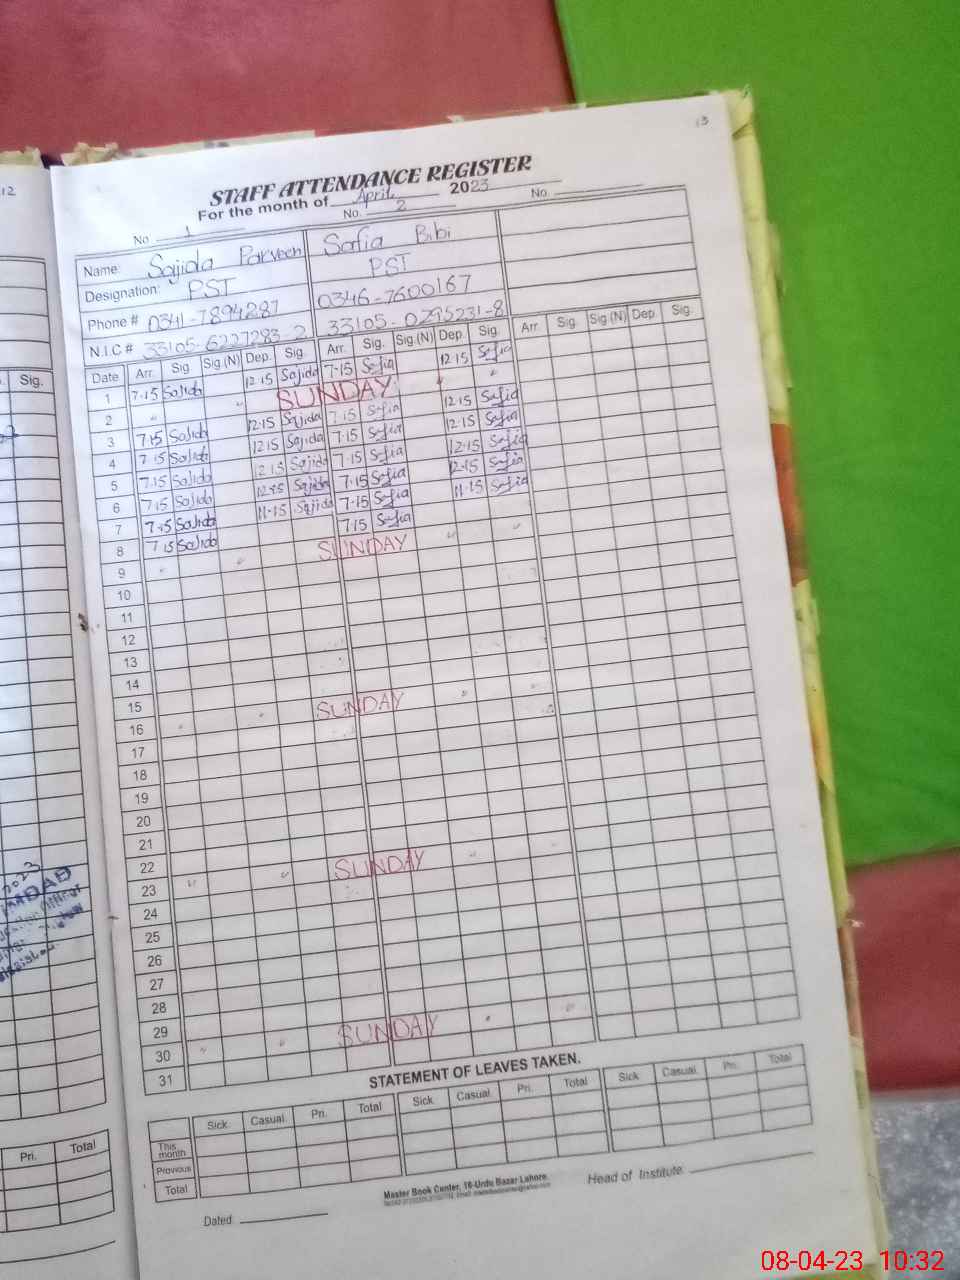 13
12
STAFF ATTENDANCE REGISTER
For the month of April 2023
No. 1 No. 2 No.
Name: Sajida Parveen Safia Bibi
Designation: PST PST
Phone # 0341-7894287 0346-7600167
N.I.C # 33105-6227283-2 33105-0295231-8
Date Arr. Sig. Sig.(N) Dep. Sig. Arr. Sig. Sig.(N) Dep. Sig. Arr. Sig. Sig.(N) Dep. Sig.
Sig.
1 7·15 Sajida 12·15 Sajida 7·15 Safia 12·15 Safia
2 " " SUNDAY " "
3 7·15 Sajida 12·15 Sajida 7·15 Safia 12·15 Safia
4 7·15 Sajida 12·15 Sajida 7·15 Safia 12·15 Safia
5 7·15 Sajida 12·15 Sajida 7·15 Safia 12·15 Safia
6 7·15 Sajida 12·15 Sajida 7·15 Safia 12·15 Safia
7 7·15 Sajida 11·15 Sajida 7·15 Safia 11·15 Safia
8 7·15 Sajida 7·15 Safia
9 " " SUNDAY " "
10
11
12
13
14
15
16 " " SUNDAY " "
17
18
19
20
21
22
23 " " SUNDAY " "
24
25
26
27
28
29
30 " " SUNDAY " "
31
STATEMENT OF LEAVES TAKEN.
Sick Casual Pri. Total Sick Casual Pri. Total Sick Casual Pri. Total
This month
Previous
Total
Pri. Total
Master Book Center, 16-Urdu Bazar Lahore.
Dated: Head of Institute:
2023
08-04-23 10:32